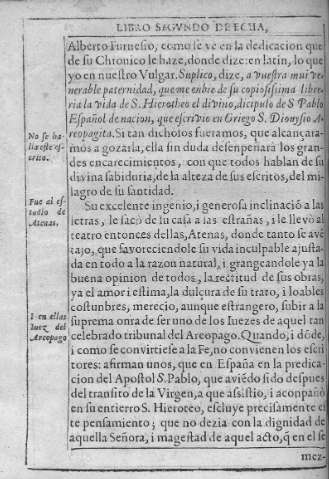 LIBRO SEGVNDO DE ECIJA,
Alberto Furnesio, como se ve en la dedicacion que
de su Chronico le haze, donde dize: en latin, lo que
yo en nuestro Vulgar. Suplico, dize, a vuestra mui ve-
nerable paternidad, que me enbie de su copiosissima libre-
ria la vida de S. Hierotheo el divino, dicipulo de S Pablo
Español de nacion, que escrivio en Griego S. Dionysio A-
reopagita. Si tan dichosos fueramos, que alcançara-
mos a gozarla, ella sin duda desenpeñarà los gran-
des encarecimientos, con que todos hablan de su
divina sabiduria, de la alteza de sus escritos, del mi-
lagro de su santidad.
Su excelente ingenio, i generosa inclinació a las
letras, le sacò de su casa a las estrañas, i le llevó al
teatro entonces dellas, Atenas, donde tanto se avé
tajo, que favoreciendole su vida inculpable ajusta-
da en todo a la razon natural, i grangeandole ya la
buena opinion de todos, la rectitud de sus obras,
ya el amor i estima, la dulçura de su trato, i loables
costunbres, merecio, aunque estrangero, subir a la
suprema onra de ser uno de los Iuezes de aquel tan
celebrado tribunal del Areopago. Quando, i dóde,
i como se convirtiese a la Fe, no convienen los escri
tores: afirman unos, que en España en la predica-
cion del Apostol S. Pablo, que aviédo sido despues
del transito de la Virgen, a que assistio, i aconpañò
en su entierro S. Hieroteo, escluye precisamente es
te pensamiento; que no dezia con la dignidad de
aquella Señora, i magestad de aquel acto, q̃ en el se
mez-
No se ha-
lla este es-
crito.
Fue al es-
tudio de
Atenas.
I en ellas
Iuez del
Areopago